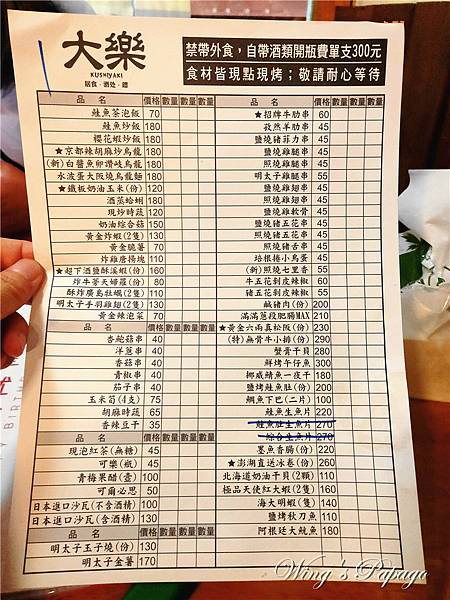 大樂
KUSHIYAKI
居食·酒処·禮
禁帶外食，自帶酒類開瓶費單支300元
食材皆現點現烤；敬請耐心等待
品 名 價格 數量 數量 數量
鮭魚茶泡飯 70
鮭魚炒飯 180
櫻花蝦炒飯 180
★京都辣胡麻炒烏龍 180
(新)白醬魚卵讚岐烏龍 180
水波蛋大阪燒烏龍麵 180
★鐵板奶油玉米(份) 120
酒蒸蛤蜊 180
現炒時蔬 120
奶油綜合菇 150
黃金炸蝦(2隻) 130
黃金脆薯 70
炸雞唐揚塊 110
★超下酒鹽酥溪蝦(份) 160
炸牛蒡天婦羅(份) 80
酥炸廣島牡蠣(2隻) 110
明太子手羽雞翅(2隻) 130
黃金辣泡菜 70
品 名 價格 數量 數量 數量
杏鮑菇串 40
洋蔥串 40
香菇串 40
青椒串 40
茄子串 40
玉米筍(4支) 75
胡麻時蔬 65
香辣豆干 35
品 名 價格 數量 數量 數量
現泡紅茶(無糖) 45
可樂(瓶) 45
青梅果醋(壺) 100
可爾必思 50
日本進口沙瓦(不含酒精) 100
日本進口沙瓦(含酒精) 130
品 名 價格 數量 數量 數量
明太子玉子燒(份) 130
明太子金薯 170
品 名 價格 數量 數量 數量
★招牌牛肋串 60
孜然羊肋串 45
鹽燒豬菲力串 45
鹽燒雞腿串 45
照燒雞腿串 45
明太子雞串 55
鹽燒雞翅串 45
照燒雞翅串 45
鹽燒雞軟骨 45
鹽燒豬五花串 45
照燒豬五花串 45
鹽燒豬杏串 45
照燒豬杏串 45
培根捲小鳥蛋 45
(新)照燒七里香 55
牛五花剝皮辣椒 60
豬五花剝皮辣椒 55
鹹豬肉(份) 200
滿滿蔥段肥腸MAX 210
★黃金六兩真松阪(份) 230
(特)無骨牛小排(份) 290
蟹膏干貝 280
鮮烤午仔魚 300
挪威鯖魚一夜干 180
鹽烤鮭魚肚(份) 200
鯛魚下巴(二片) 100
鮭魚生魚片 220
鮭魚肚生魚片 270
綜合生魚片 270
墨魚香腸(份) 220
★澎湖直送冰卷(份) 260
北海道奶油干貝(2顆) 110
極品天使紅大蝦(2隻) 160
海大明蝦(隻) 140
鹽烤秋刀魚 110
阿根廷大魷魚 180
Wing's Papago